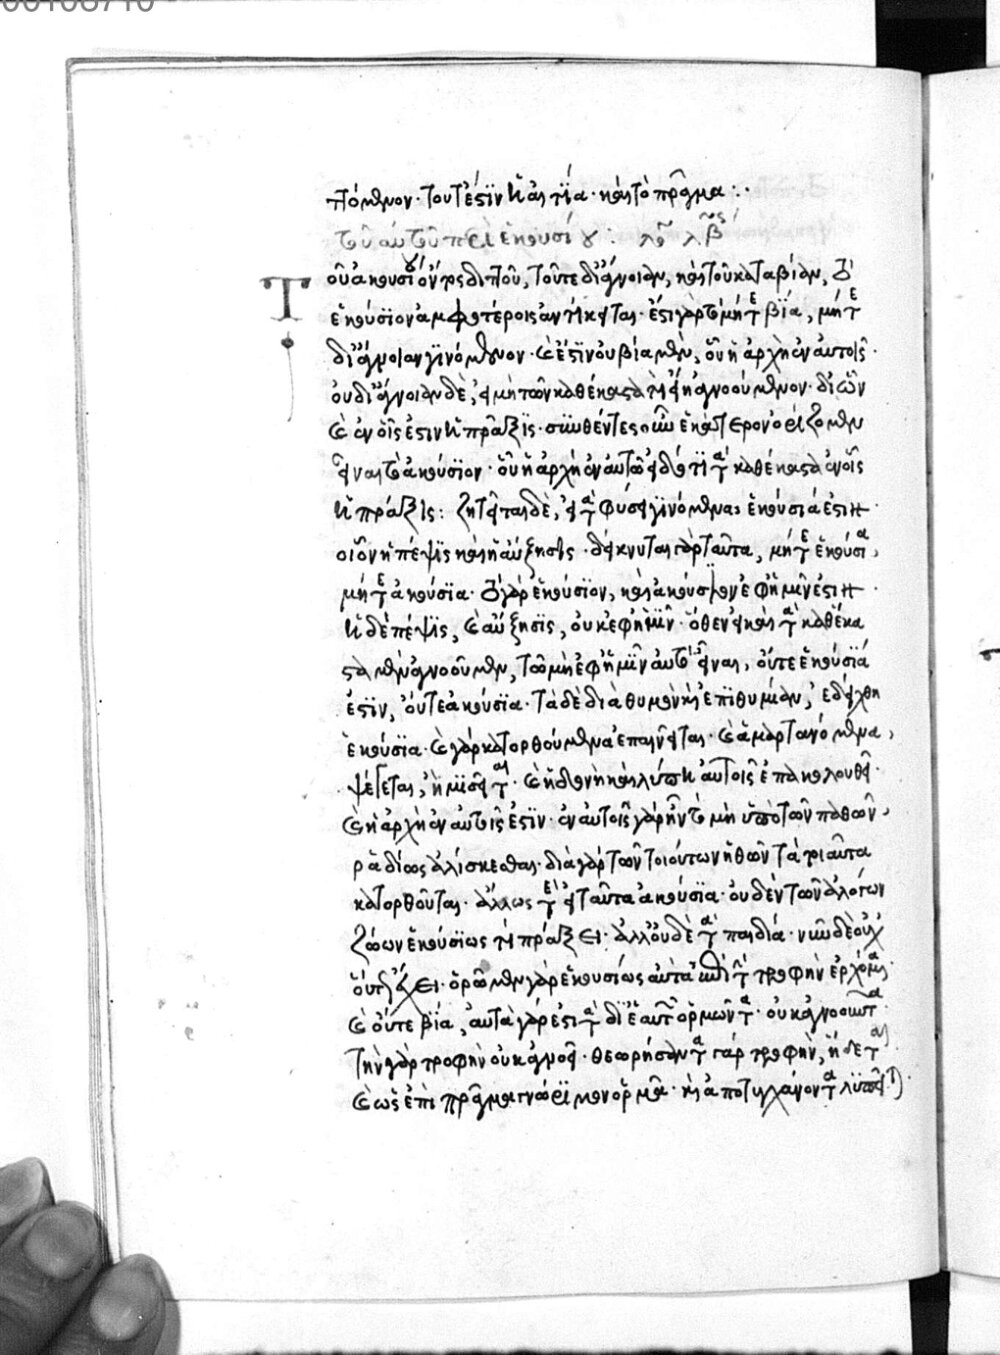 πόμενον· τουτέστιν ἡ αἰτία· καὶ τὸ πρᾶγμα :·
τοῦ αὐτοῦ περὶ ἑκουσίου :
Τοῦ ἀκουσίου οὖν ὄντος διττοῦ, τοῦ τε δι' ἄγνοιαν, καὶ τοῦ κατὰ βίαν, τὸ
ἑκούσιον ἀμφοτέροις ἀντίκειται· ἔστι γὰρ τὸ μήτε βίᾳ, μήτε
δι' ἄγνοιαν γινόμενον· καὶ ἔστιν οὐ βίᾳ μὲν, οὗ ἡ ἀρχὴ ἐν αὐτοῖς·
οὐ δι' ἄγνοιαν δὲ, εἰ μὴ τῶν καθέκαστά τι εἴη ἀγνοούμενον· δι' ὧν
καὶ ἐν οἷς ἐστιν ἡ πρᾶξις· συνθέντες οὖν ἑκάτερον ὁριζόμεθα
εἶναι τὸ ἑκούσιον· οὗ ἡ ἀρχὴ ἐν αὐτῷ εἰδότι τὰ καθέκαστα ἐν οἷς
ἡ πρᾶξις : ζητεῖται δὲ, εἰ τὰ φύσει γινόμενα, ἑκούσιά ἐστιν·
οἷον ἡ πέψις καὶ ἡ αὔξησις· δείκνυται γὰρ ταῦτα, μήτε ἑκούσια,
μήτε ἀκούσια· τὸ γὰρ ἑκούσιον, καὶ ἀκούσιον ἐφ' ἡμῖν ἐστιν·
ἡ δὲ πέψις, καὶ αὔξησις, οὐκ ἐφ' ἡμῖν· ὅθεν εἰ καὶ τὰ καθέκα
στα μὲν ἀγνοοῦμεν, τῷ μὴ ἐφ' ἡμῖν αὐτὰ εἶναι, οὔτε ἑκούσιά
ἐστιν, οὔτε ἀκούσια· τὰ δὲ διὰ θυμὸν καὶ ἐπιθυμίαν, ἐδείχθη
ἑκούσια· καὶ γὰρ κατορθούμενα ἐπαινεῖται· καὶ ἁμαρτανόμενα,
ψέγεται, ἢ μισεῖται· καὶ ἡδονὴ καὶ λύπη αὐτοῖς ἐπακολουθεῖ·
καὶ ἡ ἀρχὴ ἐν αὐτοῖς ἐστιν· ἐν αὐτοῖς γὰρ ἦν τὸ μὴ ὑπὸ τῶν παθῶν,
ῥαδίως ἁλίσκεσθαι· διὰ γὰρ τῶν τοιούτων ἠθῶν τὰ τοιαῦτα
κατορθοῦται· ἄλλως τε εἰ ταῦτα ἀκούσια· οὐδὲν τῶν ἀλόγων
ζώων ἑκουσίως τι πράξει· ἀλλ' οὐδὲ τὰ παιδία· νῦν δὲ οὐχ
οὕτως ἔχει· ὁρῶμεν γὰρ ἑκουσίως αὐτὰ ἐπὶ τὴν τροφὴν ἐρχόμενα
καὶ οὔτε βίᾳ, αὐτὰ γάρ ἐστι τὰ δι' ἑαυτῶν ὁρμῶντα· οὐκ ἀγνοοῦντα
τὴν γὰρ τροφὴν οὐκ ἀγνοεῖ· θεωρήσαντα γὰρ τροφὴν, ἥδεται
καὶ ὡς ἐπὶ πρᾶγμα γνώριμον ὁρμᾷ· καὶ ἀποτυγχάνοντα λυπεῖται